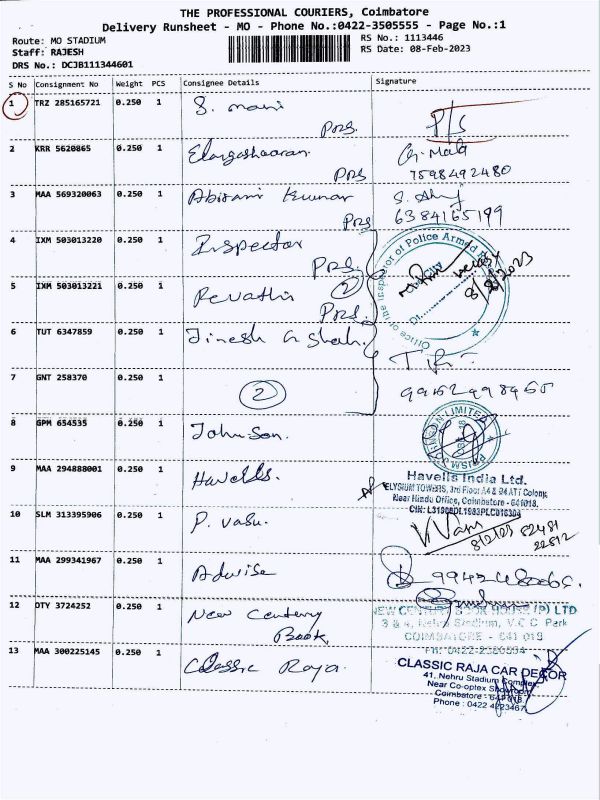 THE PROFESSIONAL COURIERS, Coimbatore
Delivery Runsheet - MO - Phone No.:0422-3505555 - Page No.:1
Route: MO STADIUM
RS No.: 1113446
Staff: RAJESH
RS Date: 08-Feb-2023
DRS No.: DCJB111344601
S No Consignment No Weight PCS Consignee Details Signature
1 TRZ 285165721 0.250 1 S. mani
PRS. P/S
2 KRR 5620865 0.250 1 G. Mala
PRS 7598492480
3 MAA 569320063 0.250 1 Abirami Kumar
PRS 6384165199
4 IXM 503013220 0.250 1 Inspector
PRS. Office of the Inspector of Police Armed
8/2/2023
5 IXM 503013221 0.250 1 Revathi 2
PRS.
6 TUT 6347859 0.250 1 Jinesh G Shah.
7 GNT 258370 0.250 1
2
8 GPM 654535 0.250 1 Johnson.
LIMITED
9 MAA 294888001 0.250 1 Havells.
Havells India Ltd.
ELYSIUM TOWERS, 3rd Floor A4 & 94 ATT Colony,
Near Hindu Office, Coimbatore - 641018.
CIN: L31900DL1983PLC016304
10 SLM 313395906 0.250 1 P. Vasu.
8/2/23 82481
22812
11 MAA 299341967 0.250 1 Adwise
12 DTY 3724252 0.250 1 New Century
Book
NEW CENTURY BOOK HOUSE (P) LTD
3 & 4, Nehru Stadium, V.C.C Park
COIMBATORE - 641 018
13 MAA 300225145 0.250 1 Classic Raja.
CLASSIC RAJA CAR DECOR
41, Nehru Stadium Complex
Near Co-optex Showroom
Coimbatore - 641 018
Phone : 0422 4223467